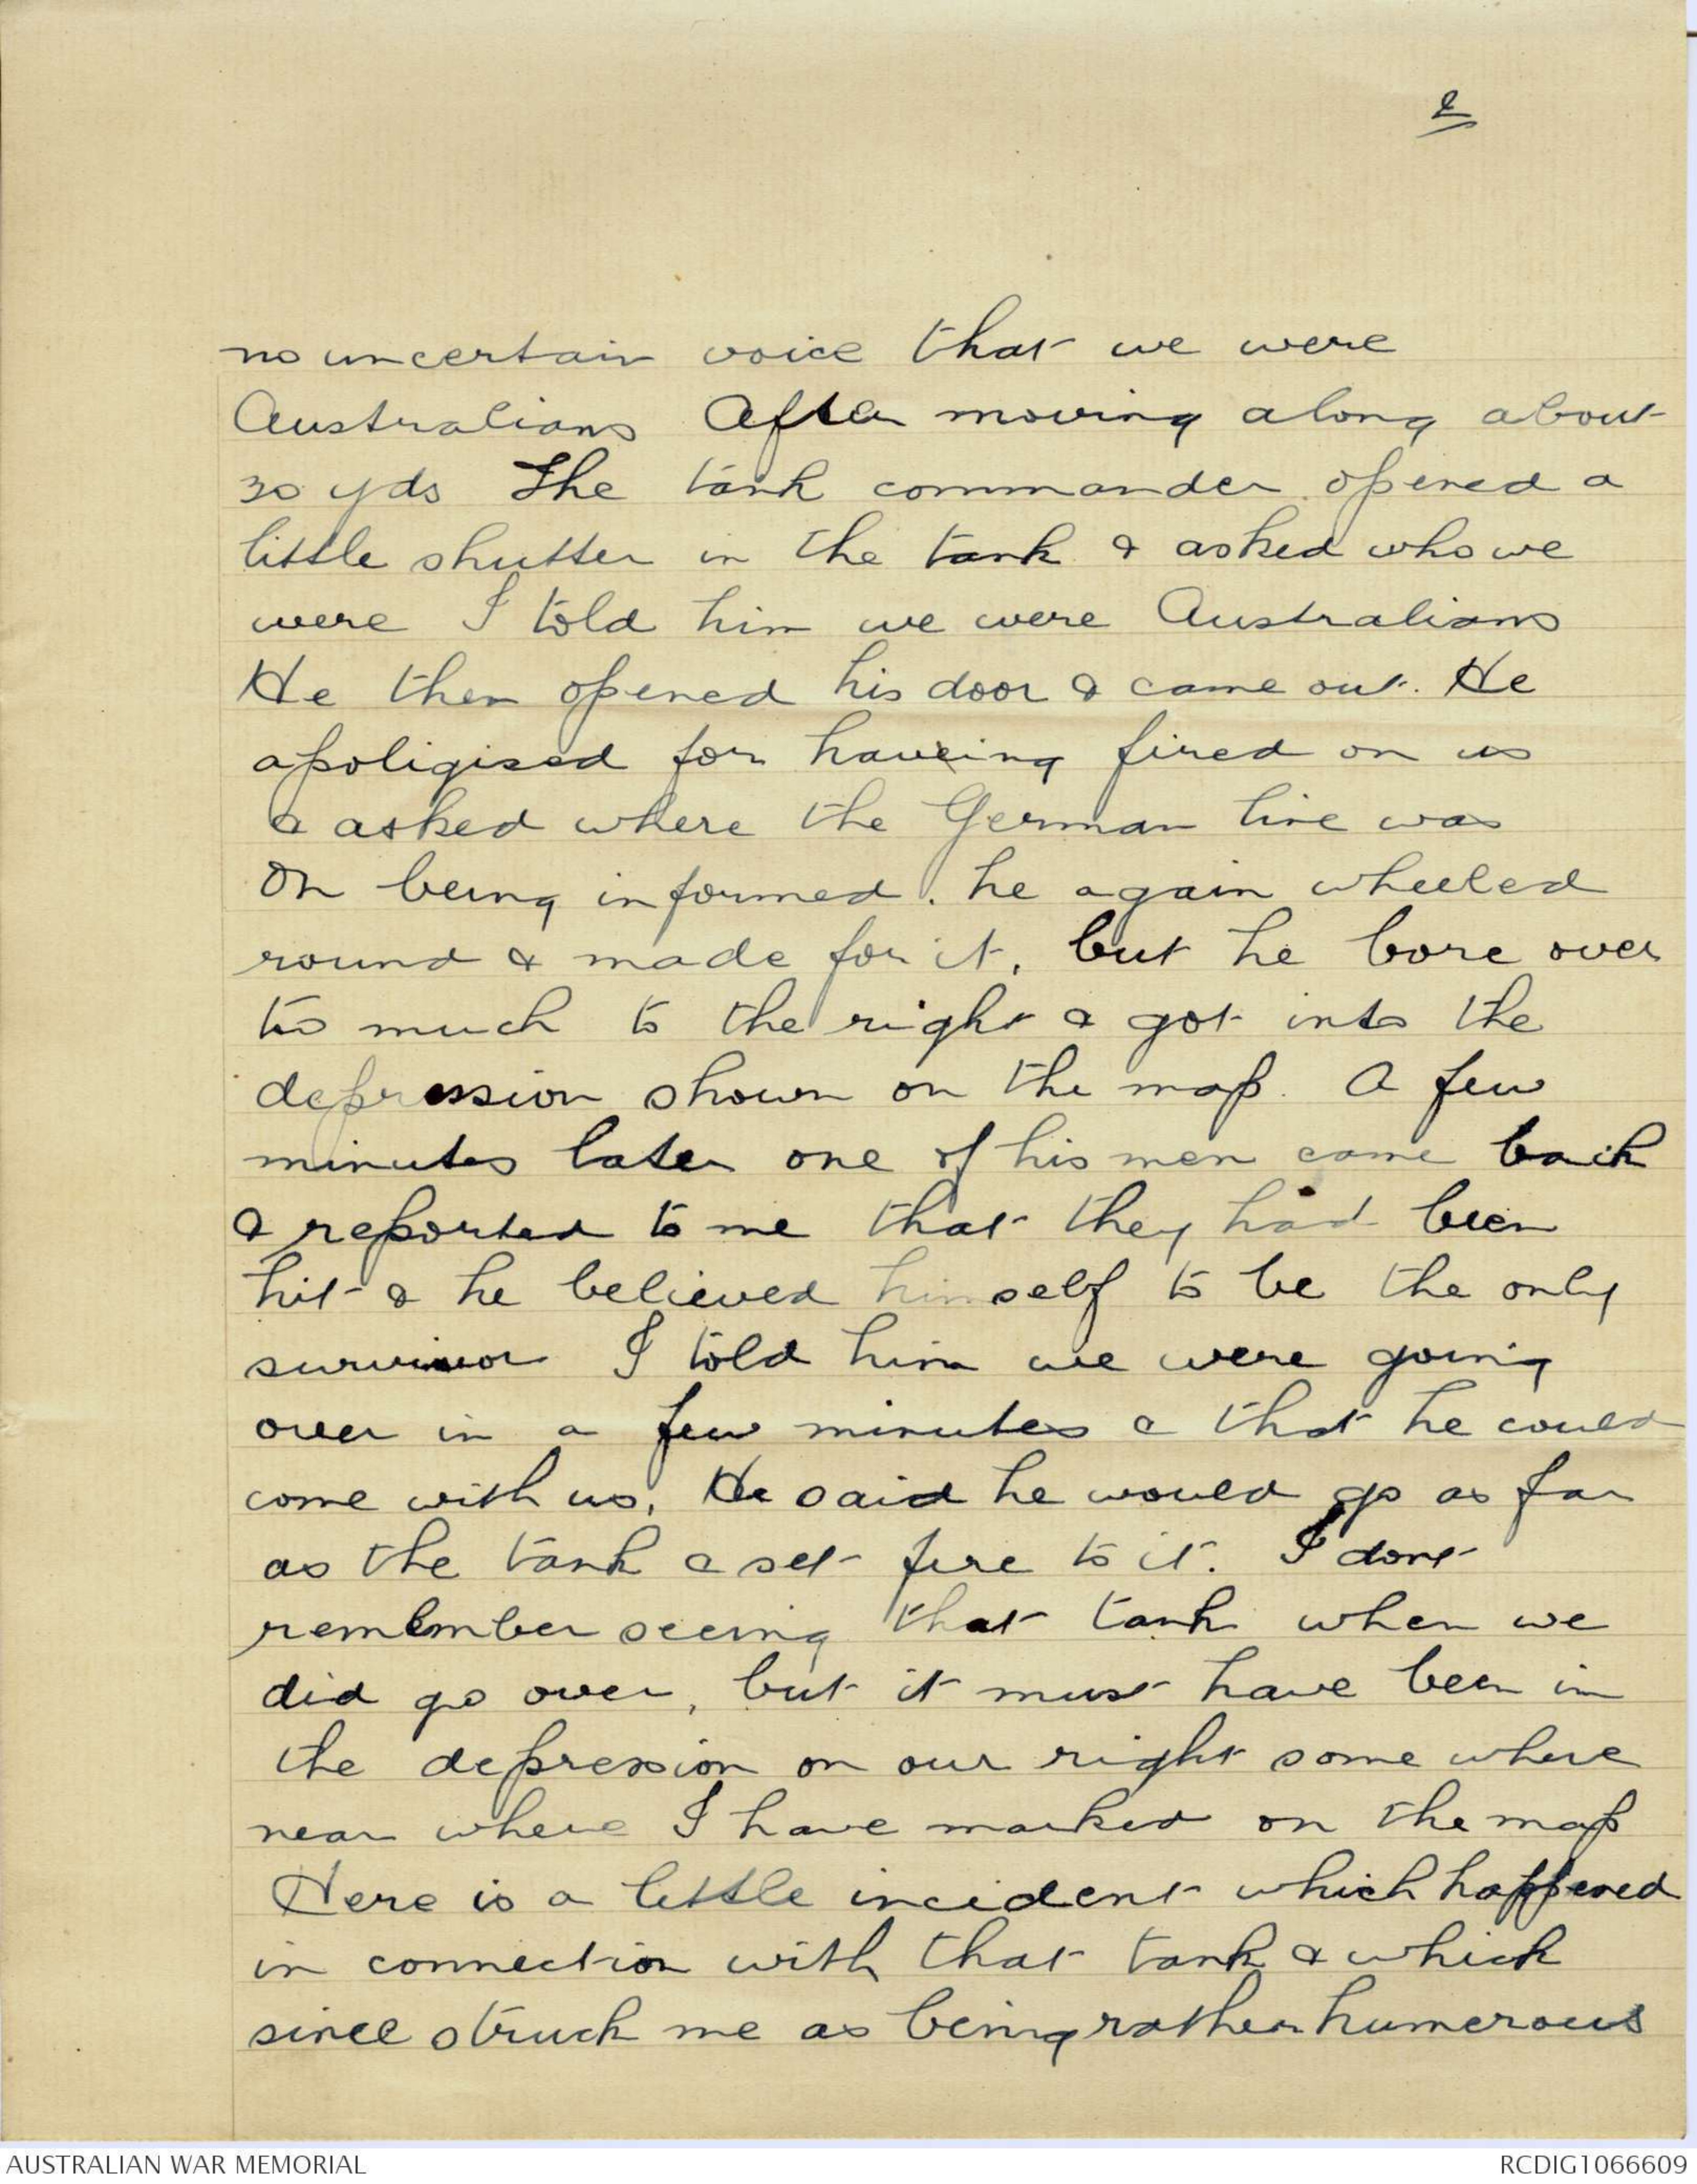 2
no uncertain voice that we were
Australians After moving along about
30 yds The tank commander opened a
little shutter in the tank & asked who we
were I told him we were Australians
He then opened his door & came out. He
apoligised for haveing fired on us
& asked where the German line was
On being informed, he again wheeled
round & made for it, but he bore over
too much to the right & got into the
depression shown on the map. A few
minutes later one of his men came back
& reported to me that they had been
hit & he believed himself to be the only
survivor I told him we were going
over in a few minutes & that he could
come with us, He said he would go as far
as the tank & set fire to it. I dont
remember seeing that tank when we
did go over, but it must have been in
the depression on our right some where
near where I have marked on the map
Here is a little incident which happened
in connection with that tank & which
since struck me as being rather humerous
AUSTRALIAN WAR MEMORIAL
RCDIG1066609